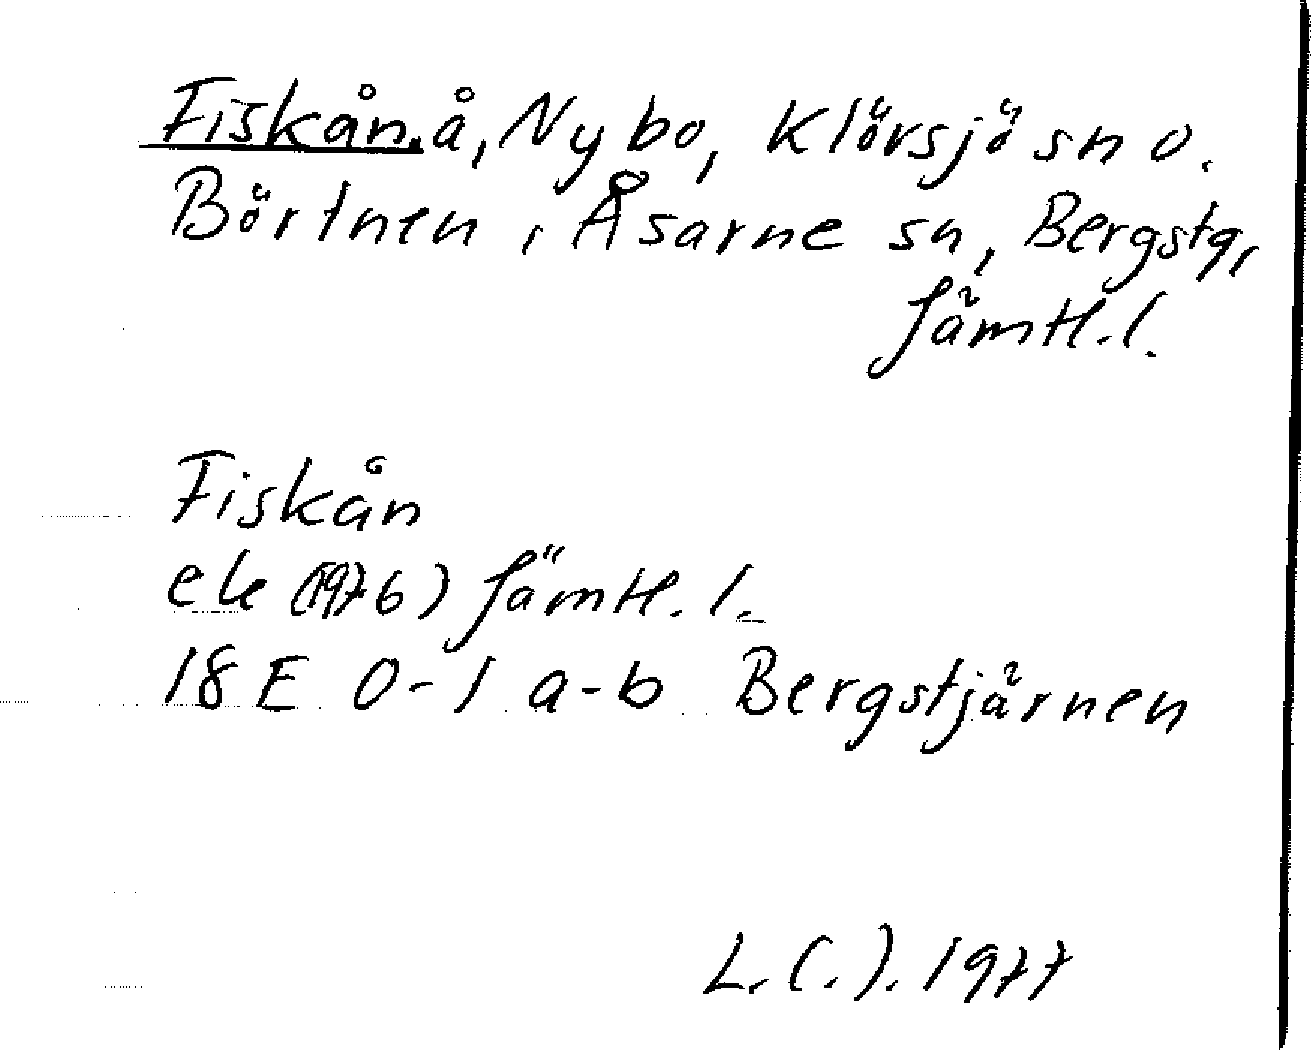 Fiskån, å, Nybo, Klövsjö sn o.
Börtnen, Åsarne sn, Bergstg,
Jämtl. l.
Fiskån
ek (1976) Jämtl. l.
18 E 0-1 a-b Bergstjärnen
L. (.). 1977